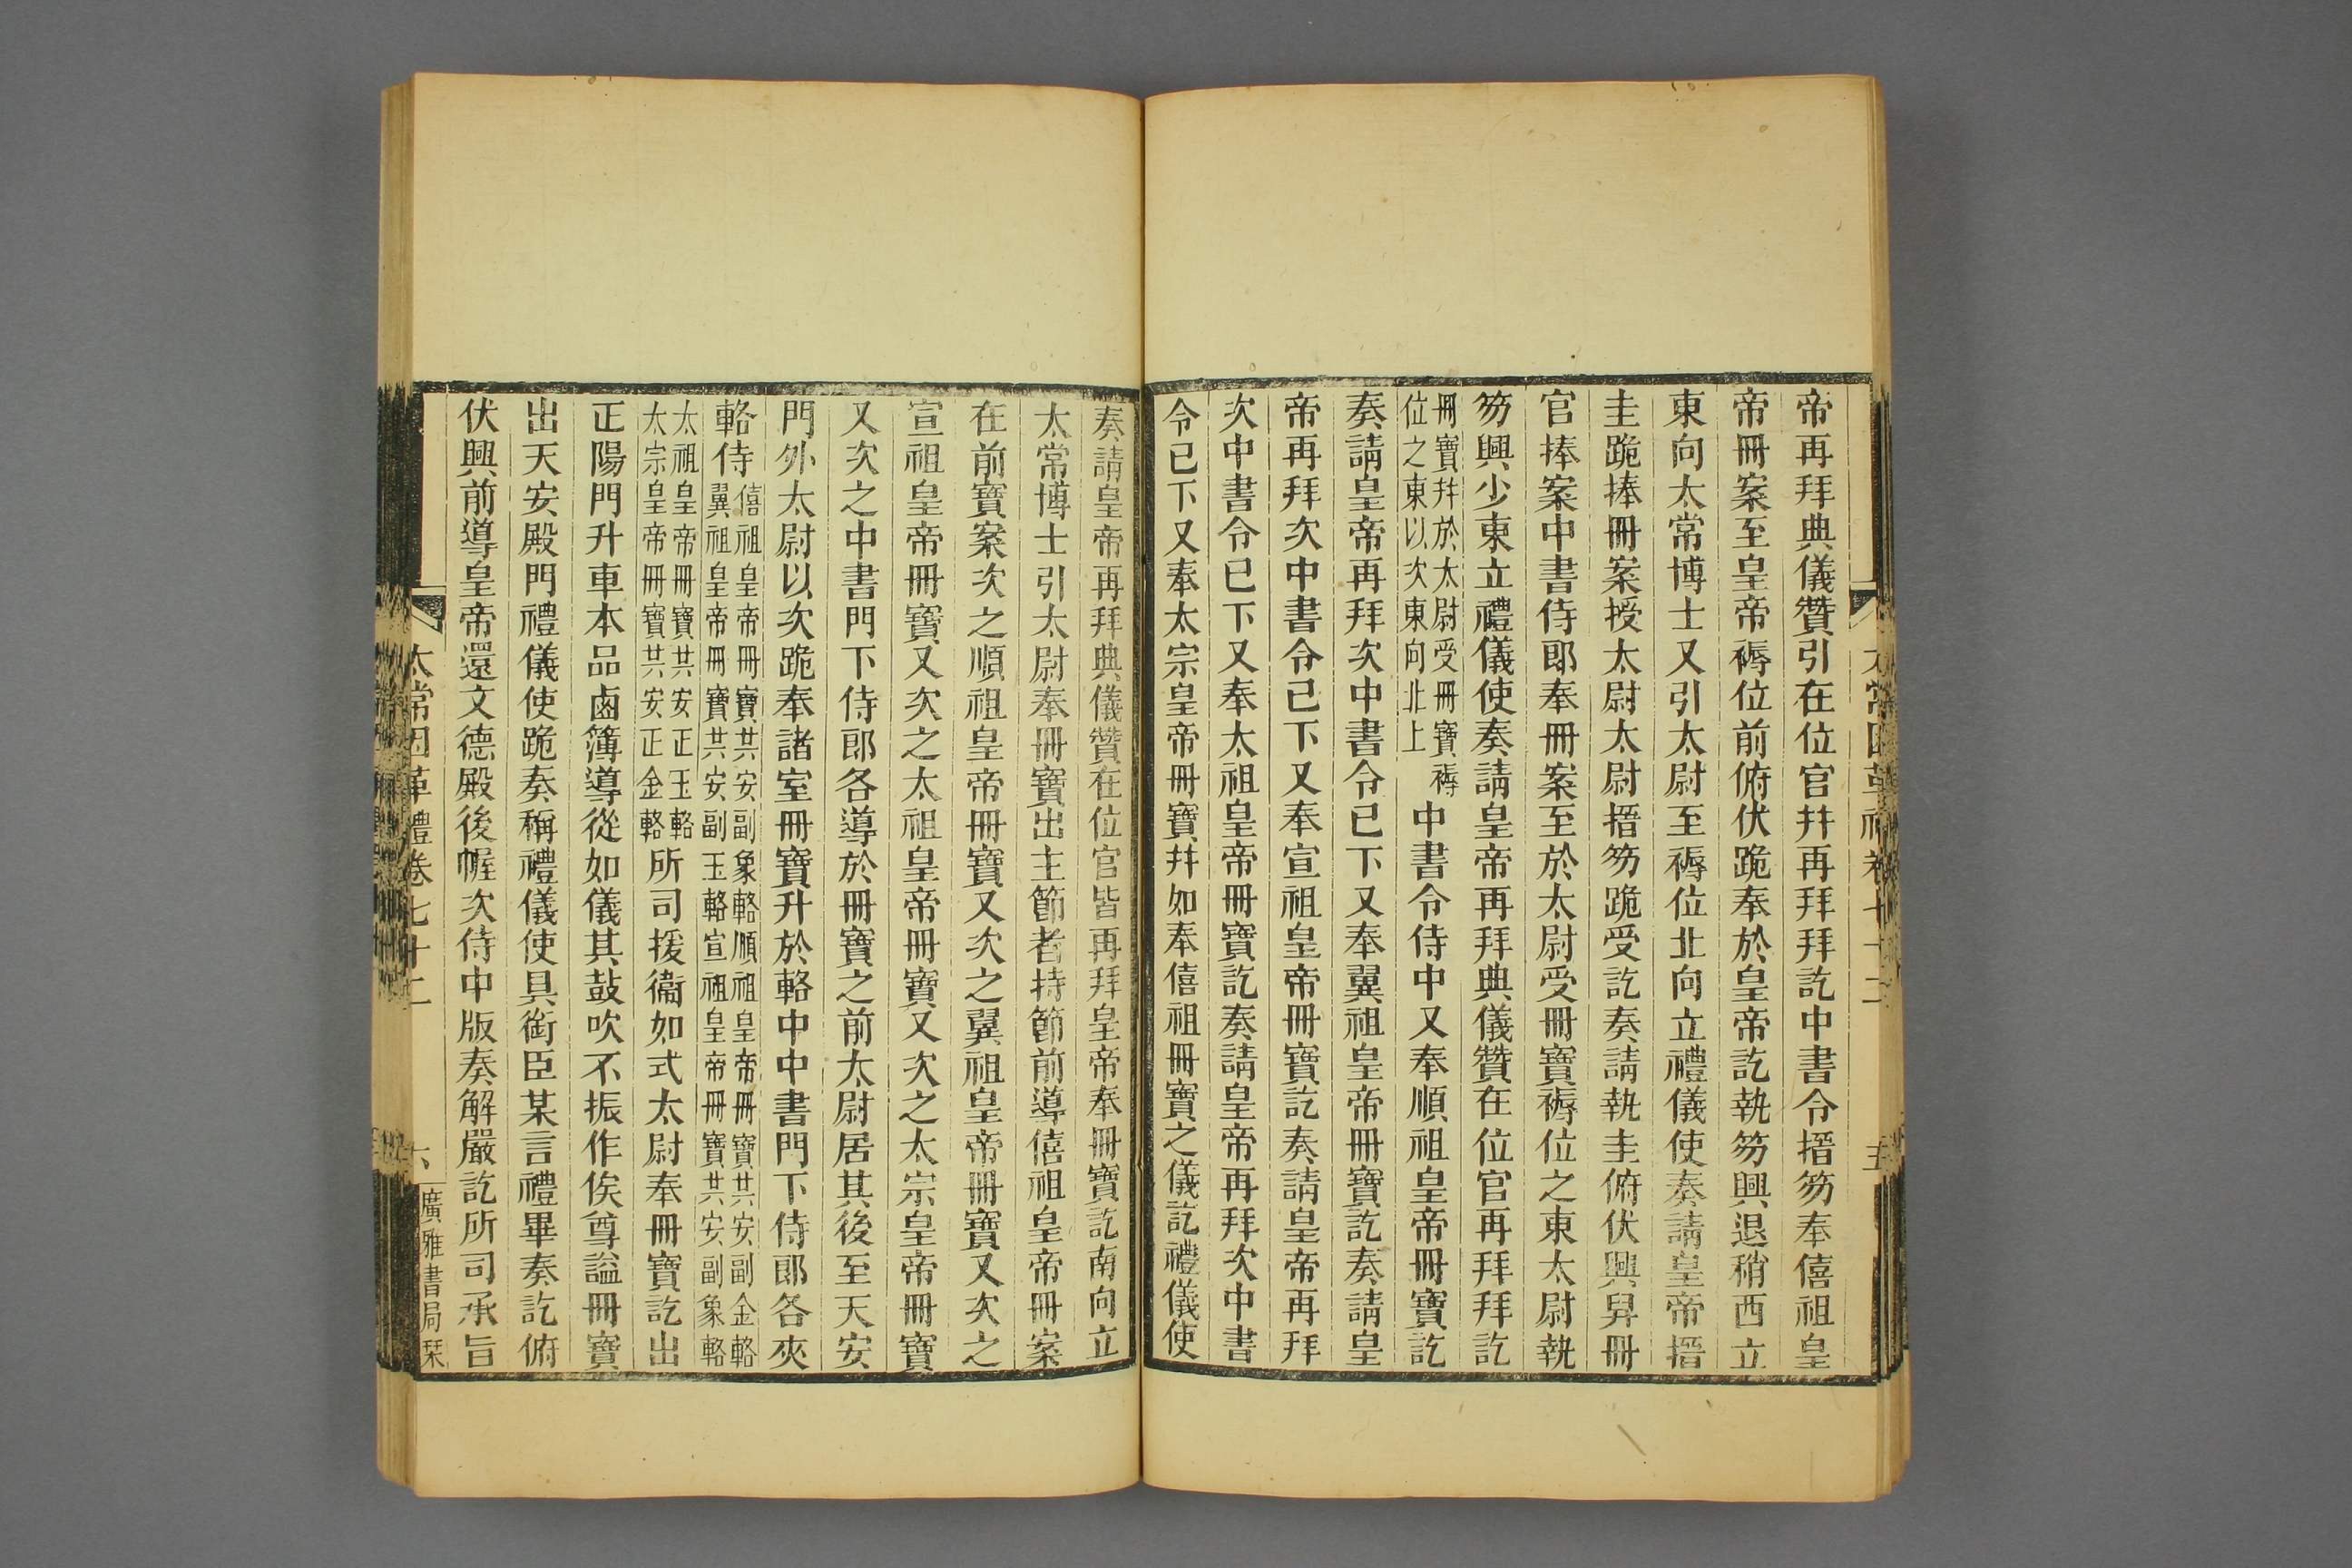 帝再拜典儀贊引在位官幷再拜拜訖中書令搢笏奉僖祖皇
帝冊案至皇帝褥位前俯伏跪奉於皇帝訖執笏興退稍西立
東向太常博士又引太尉至褥位北向立禮儀使奏請皇帝搢
圭跪捧冊案授太尉太尉搢笏跪受訖奏請執圭俯伏興舁冊
官捧案中書侍郎奉冊案至於太尉受冊寶褥位之東太尉執
笏興少東立禮儀使奏請皇帝再拜典儀贊在位官再拜拜訖
冊寶幷於太尉受冊寶褥
位之東以次東向北上
中書令侍中又奉順祖皇帝冊寶訖
奏請皇帝再拜次中書令已下又奉翼祖皇帝冊寶訖奏請皇
帝再拜次中書令已下又奉宣祖皇帝冊寶訖奏請皇帝再拜
次中書令已下又奉太祖皇帝冊寶訖奏請皇帝再拜次中書
令已下又奉太宗皇帝冊寶幷如奉僖祖冊寶之儀訖禮儀使
太常因革禮卷七十二
五
奏請皇帝再拜典儀贊在位官皆再拜皇帝奉冊寶訖南向立
太常博士引太尉奉冊寶出主節者持節前導僖祖皇帝冊案
在前寶案次之順祖皇帝冊寶又次之翼祖皇帝冊寶又次之
宣祖皇帝冊寶又次之太祖皇帝冊寶又次之太宗皇帝冊寶
又次之中書門下侍郎各導於冊寶之前太尉居其後至天安
門外太尉以次跪奉諸室冊寶升於輅中中書門下侍郎各夾
輅侍
僖祖皇帝冊寶共安副象輅順祖皇帝冊寶共安副金輅
翼祖皇帝冊寶共安副玉輅宣祖皇帝冊寶共安副象輅
太祖皇帝冊寶共安正玉輅
太宗皇帝冊寶共安正金輅
所司援衞如式太尉奉冊寶訖出
正陽門升車本品鹵簿導從如儀其鼓吹不振作俟尊謚冊寶
出天安殿門禮儀使跪奏稱禮儀使具銜臣某言禮畢奏訖俯
伏興前導皇帝還文德殿後幄次侍中版奏解嚴訖所司承旨
太常因革禮卷七十二
六
廣雅書局栞